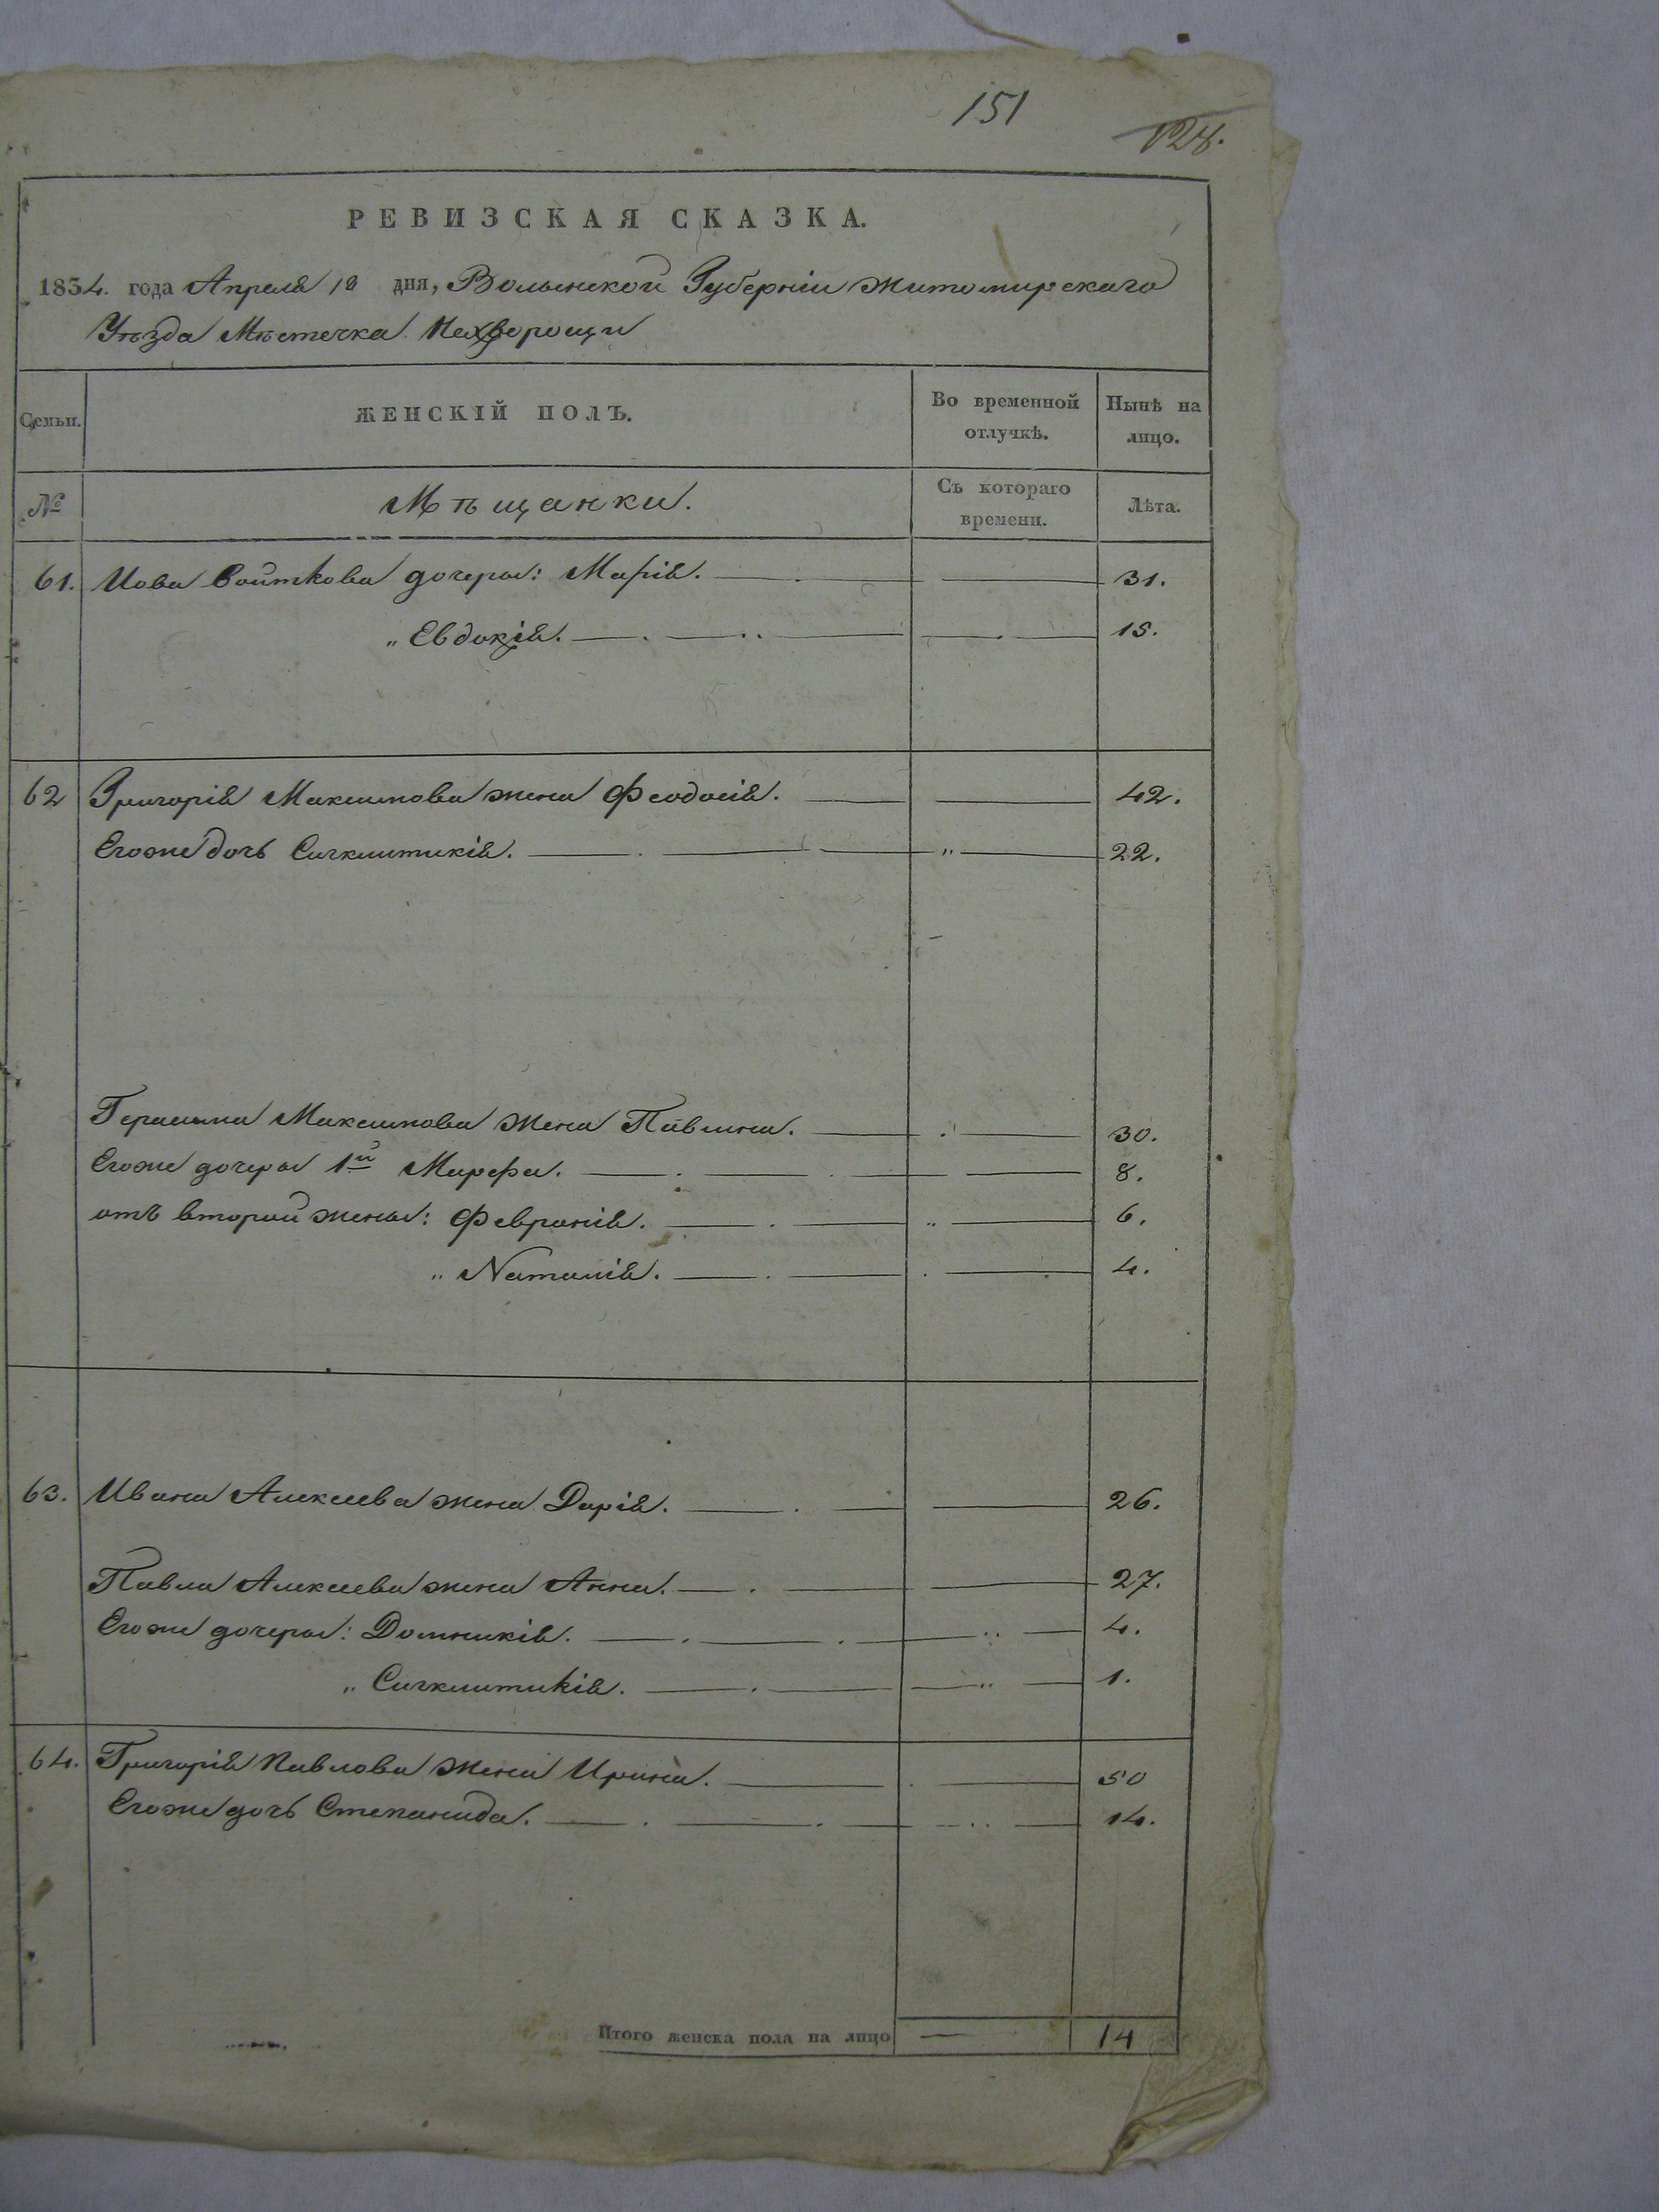 151
128.
РЕВИЗСКАЯ СКАЗКА.
1834. года Апреля 18 дня, Волынской Губерніи Житомирскаго
Уѣзда Мѣстечка Нехворощи
Семьи. ЖЕНСКІЙ ПОЛЪ. Во временной отлучкѣ. Нынѣ на лицо.
№ Мѣщанки. Съ котораго времени. Лѣта.
61. Иова Войткова дочеры: Марія. 31.
„ Евдокія. 15.
62 Григорія Максимова жена Феодосія. 42.
Егоже дочь Сигклитикія. „ 22.
Герасима Максимова жена Павлина. 30.
Егоже дочеры 1й Марфа. 8.
отъ второй жены: Февронія. „ 6.
„ Наталія. 4.
63. Ивана Алексеева жена Дарія. 26.
Павла Алексеева жена Анна. 27.
Егоже дочеры: Домникія. „ 4.
„ Сигклитикія. „ 1.
64. Григорія Павлова жена Ирина. 50
Егоже дочь Степанида. „ 14.
Итого женска пола на лицо — 14